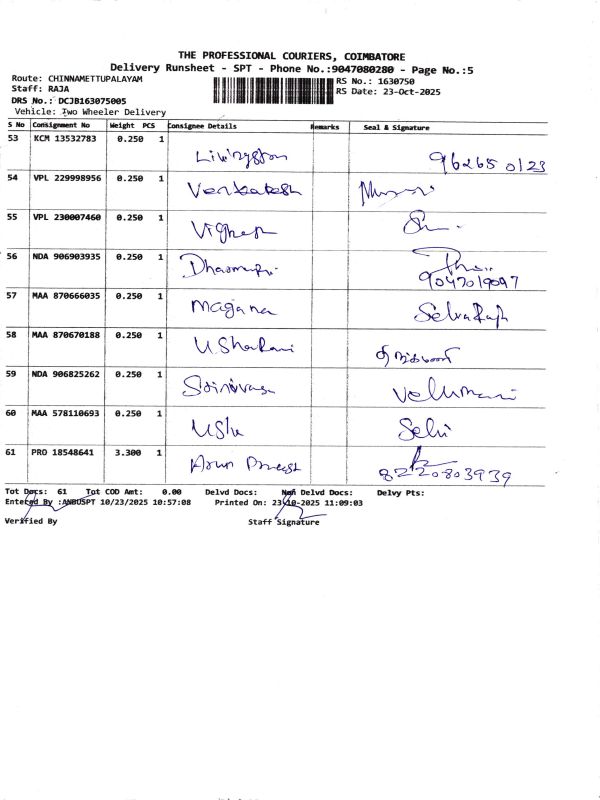 THE PROFESSIONAL COURIERS, COIMBATORE
Delivery Runsheet - SPT - Phone No.:9047080280 - Page No.:5
Route: CHINNAMETTUPALAYAM RS No.: 1630750
Staff: RAJA RS Date: 23-Oct-2025
DRS No.: DCJB163075005
Vehicle: Two Wheeler Delivery
S No Consignment No Weight PCS Consignee Details Remarks Seal & Signature
53 KCM 13532783 0.250 1 Livingston 962650123
54 VPL 229998956 0.250 1 Venkatesh
55 VPL 230007460 0.250 1 Vighesh
56 NDA 906903935 0.250 1 9047019097
57 MAA 870666035 0.250 1 magana SelvaRaj
58 MAA 870670188 0.250 1 UShaRani
59 NDA 906825262 0.250 1 Srinivasa Velumani
60 MAA 578110693 0.250 1 Usha Selvi
61 PRO 18548641 3.300 1 Arun 8220803939
Tot Docs: 61 Tot COD Amt: 0.00 Delvd Docs: Non Delvd Docs: Delvy Pts:
Entered By :ANBUSPT 10/23/2025 10:57:08 Printed On: 23-10-2025 11:09:03
Verified By Staff Signature